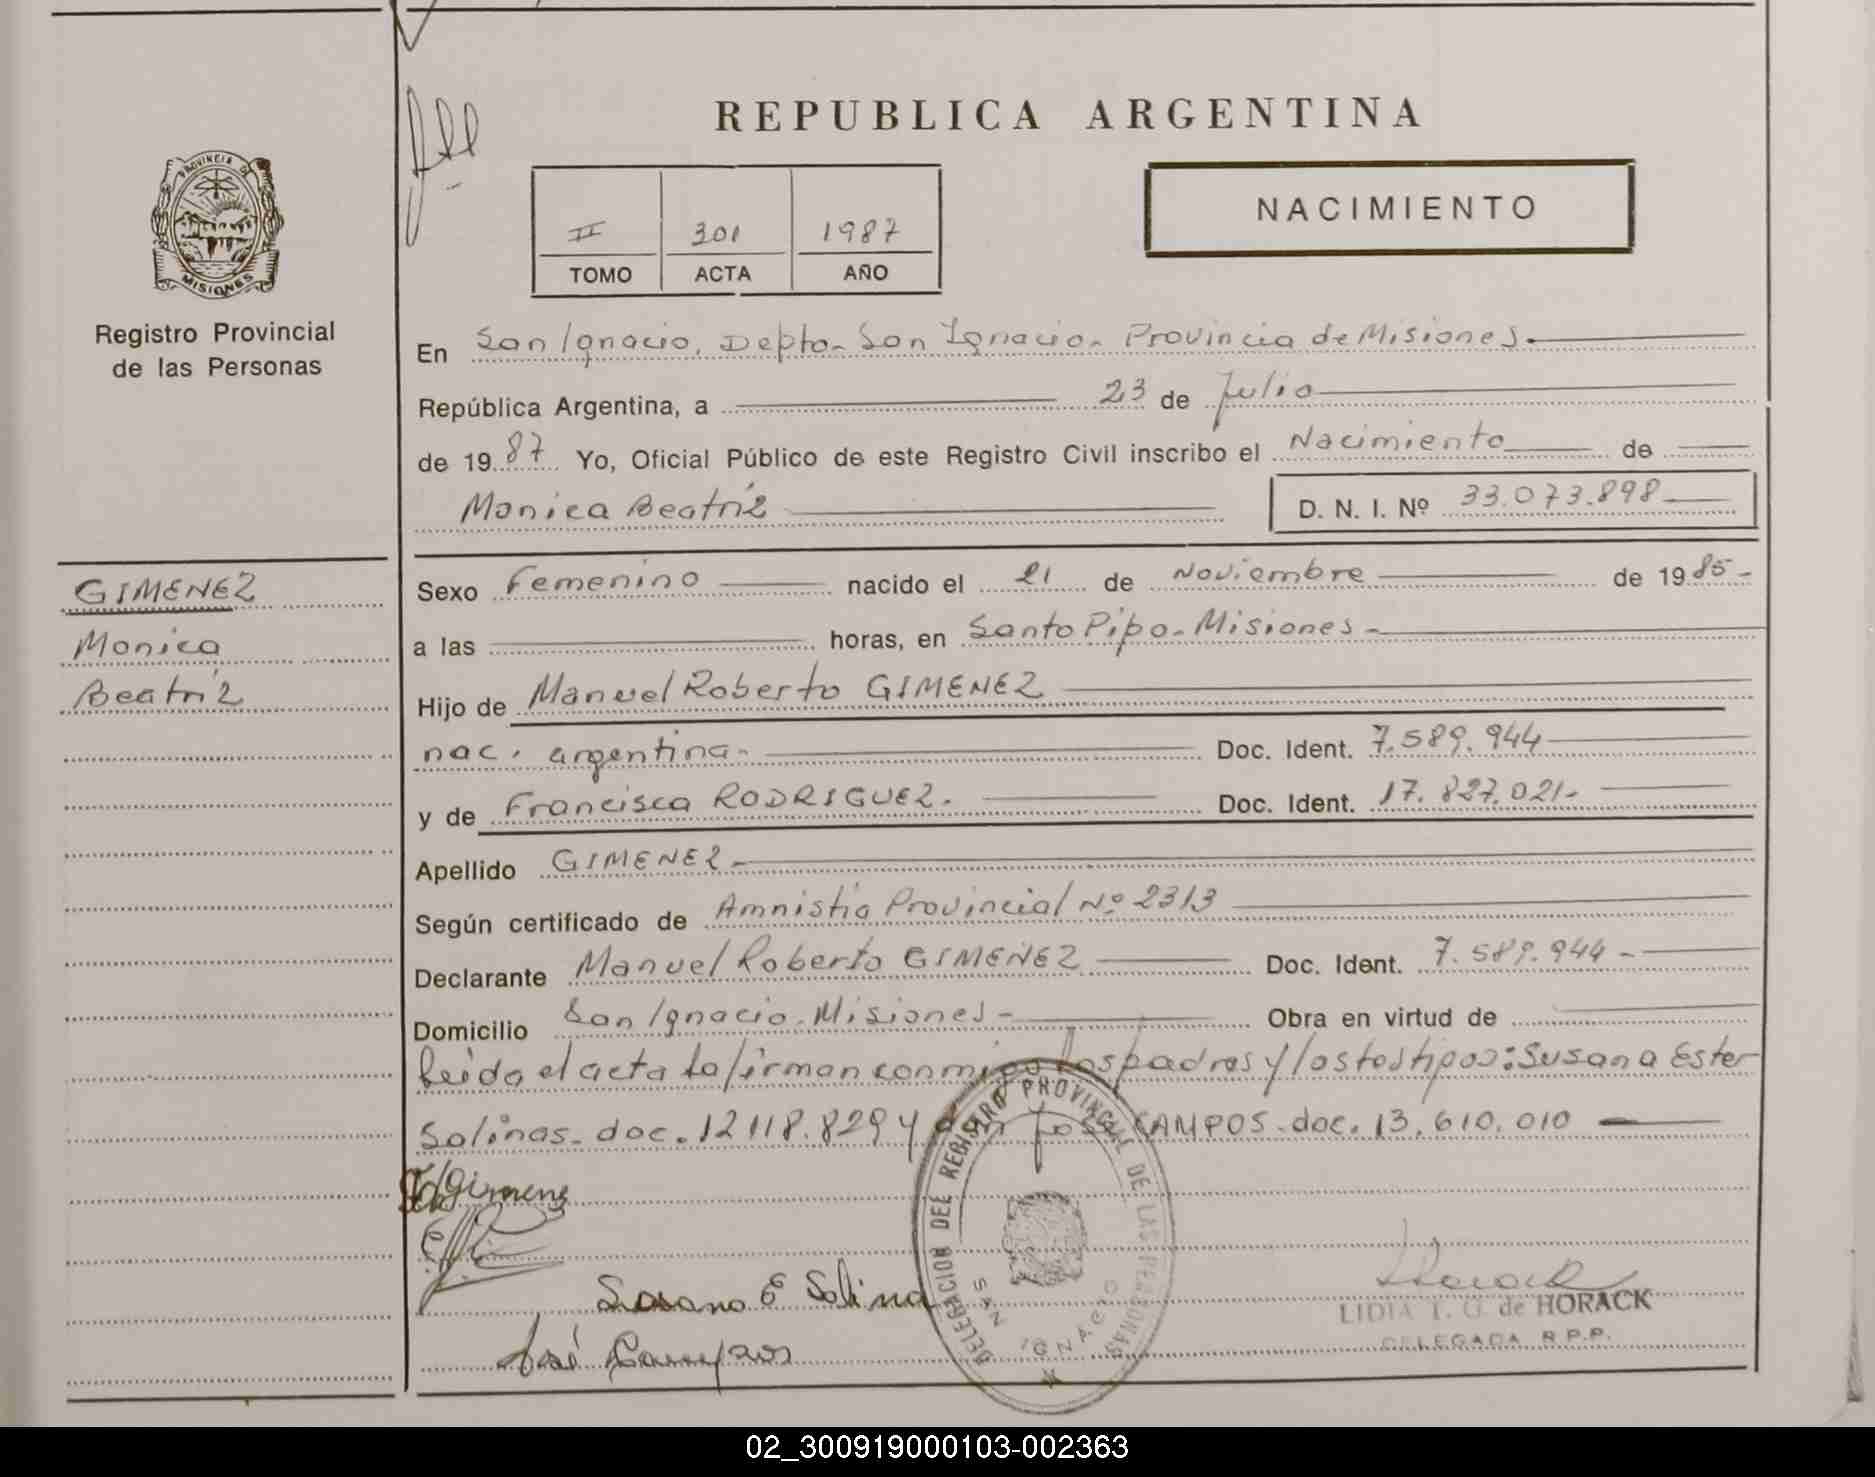 REPUBLICA ARGENTINA
PROVINCIA DE
MISIONES
Registro Provincial
de las Personas
II 301 1987
TOMO ACTA AÑO
NACIMIENTO
En San Ignacio, Depto- San Ignacio- Provincia de Misiones.
República Argentina, a 23 de Julio
de 1987 Yo, Oficial Público de este Registro Civil inscribo el Nacimiento de
Monica Beatriz D. N. I. Nº 33.073.898
GIMENEZ
Monica
Beatriz
Sexo Femenino nacido el 21 de Noviembre de 1985-
a las horas, en Santo Pipo- Misiones-
Hijo de Manuel Roberto GIMENEZ
nac. argentina- Doc. Ident. 7.589.944
y de Francisca RODRIGUEZ. Doc. Ident. 17.827.021-
Apellido GIMENEZ-
Según certificado de Amnistia Provincial Nº 2313
Declarante Manuel Roberto GIMENEZ Doc. Ident. 7.589.944-
Domicilio San Ignacio- Misiones- Obra en virtud de
Leida el acta la firman conmigo los padres y los testigos: Susana Ester
Salinas- doc. 12.118.829 y José CAMPOS- doc. 13.610.010
Gimenez
Susana E Salina
José Campos
DELEGACION DEL REGISTRO PROVINCIAL DE LAS PERSONAS
SAN IGNACIO
LIDIA T. G. de HORACK
DELEGADA R.P.P.
02_300919000103-002363